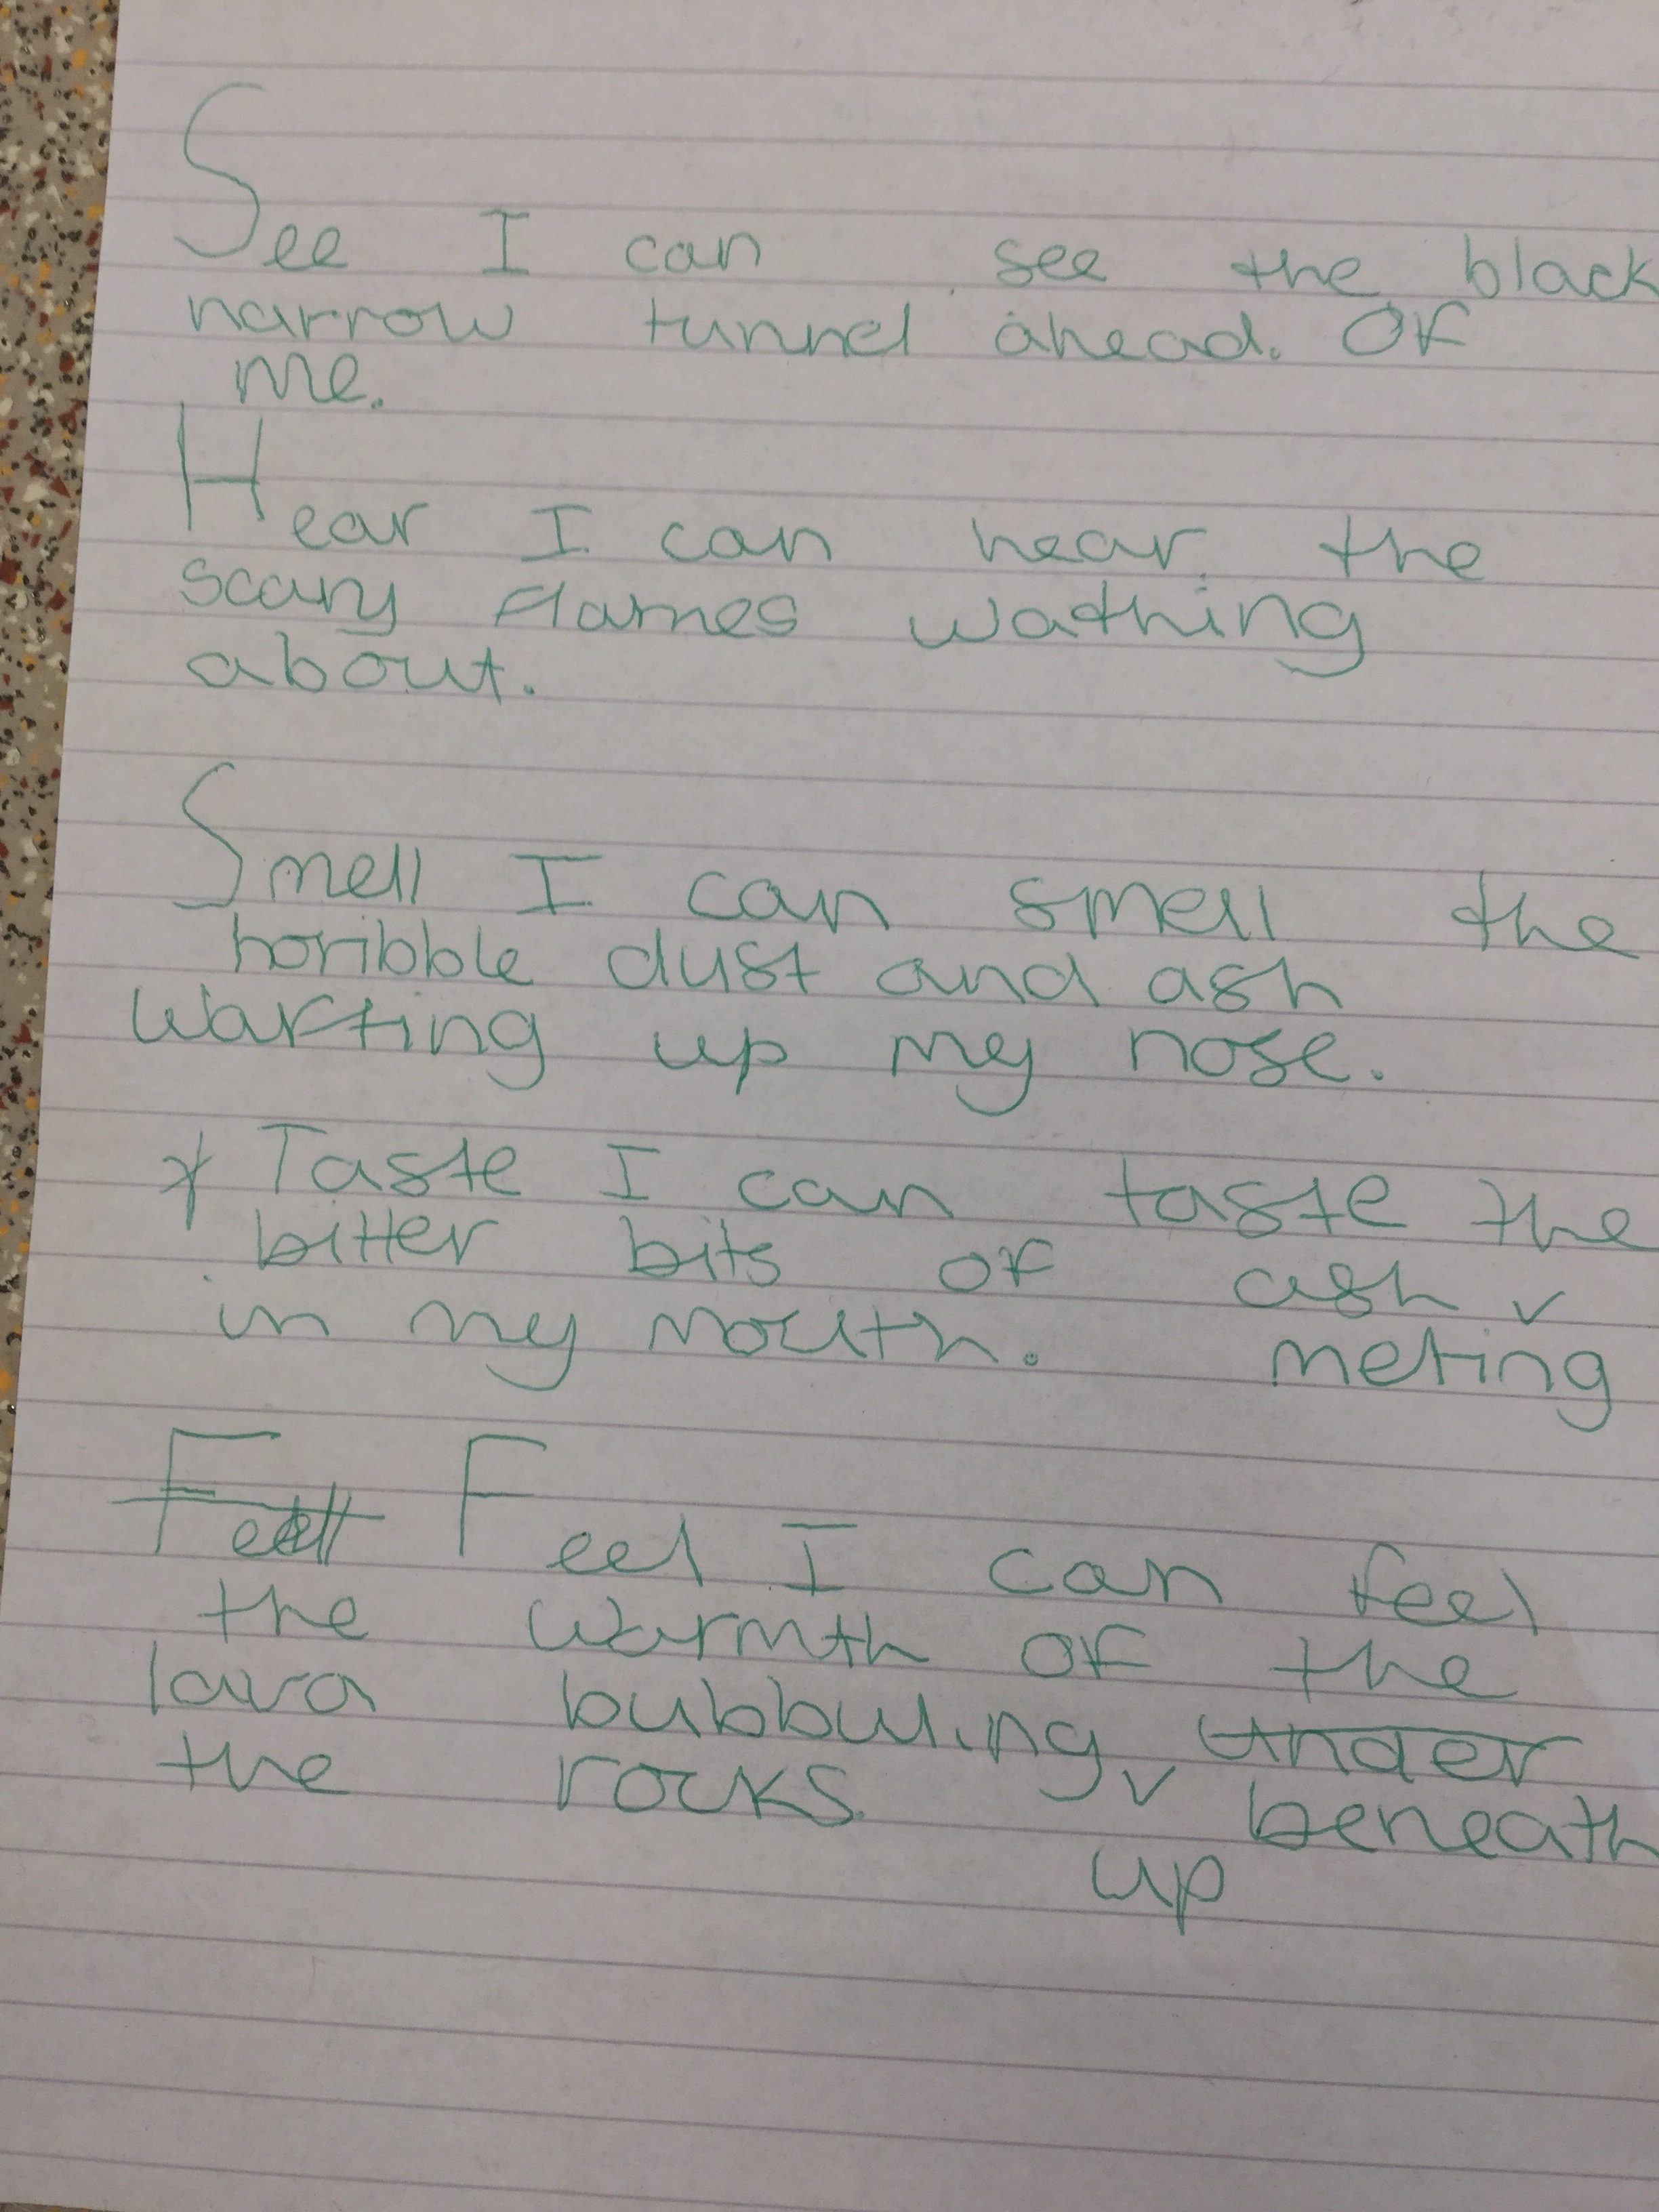 See I can see the black
narrow tunnel ahead. Of
me.
Hear I can hear the
scary flames wathing
about.
Smell I can smell the
horibble dust and ash
warfting up my nose.
* Taste I can taste the
bitter bits of ash v
in my mouth. melting
Feell Feel I can feel
the warmth of the
lava bubbuling v under
the rocks. beneath
up